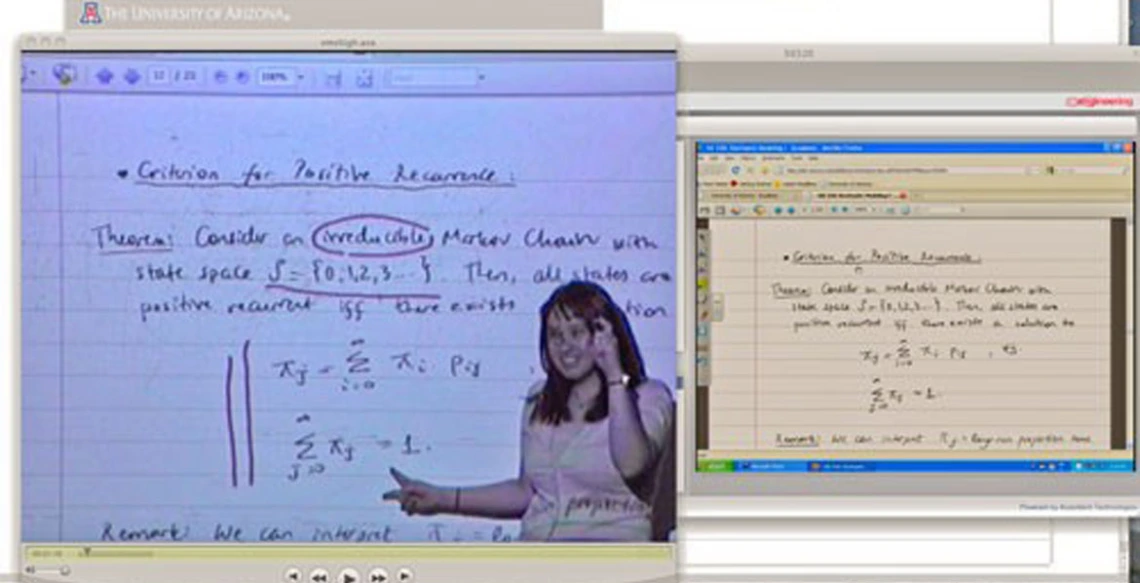 THE UNIVERSITY OF ARIZONA.
12 / 23
100%
• Criterion for Positive Recurrence:
Theorem: Consider an irreducible Markov Chain with
state space S = {0,1,2,3...}. Then, all states are
positive recurrent iff there exists
πj = Σ i=0 ∞ πi Pij ,
Σ j=0 ∞ πj = 1.
Remark: We can interpret πj =
proportion
engineering
• Criterion for Positive Recurrence:
Theorem: Consider an irreducible Markov Chain with
state space S = {0,1,2,3...}. Then, all states are
positive recurrent iff there exists a solution to
πj = Σ i=0 ∞ πi Pij , ∀j.
Σ j=0 ∞ πj = 1.
Remark: We can interpret πj = long-run proportion
Powered by